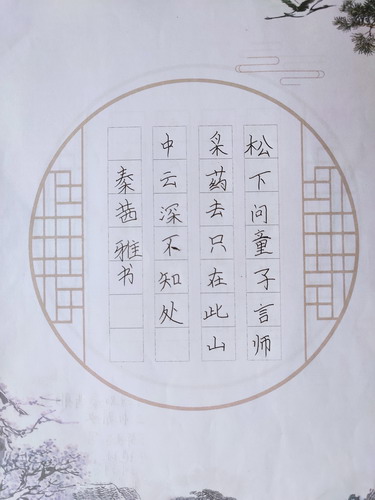 松下问童子言师
采药去只在此山
中云深不知处
秦茜雅书